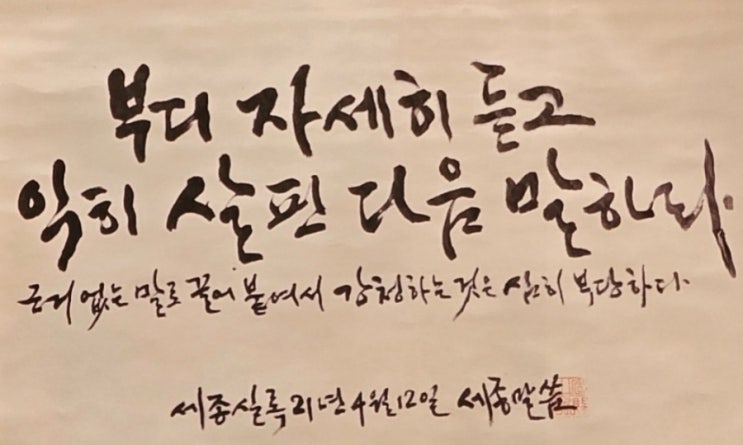 부디 자세히 듣고
익히 살핀 다음 말하라.
근거 없는 말로 끌어 붙여서 강청하는 것은 심히 부당하다.
세종실록 21년 4월 12일 세종말씀